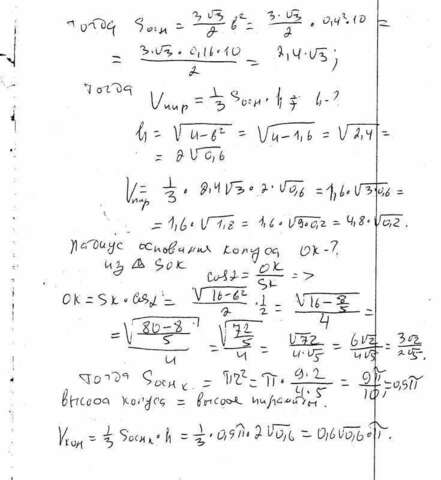 тогда Sосн = 3√3/2 b² = 3·√3/2 · 0,4²·10 =
= 3·√3·0,16·10/2 = 2,4·√3;
тогда
Vпир = 1/3 Sосн · h h-?
h = √(4-b²) = √(4-1,6) = √(2,4) =
= 2√(0,6)
Vпир = 1/3 · 2,4√3 · 2·√(0,6) = 1,6·√(3·0,6) =
= 1,6·√(1,8) = 1,6·√(9·0,2) = 4,8·√(0,2).
Радиус основания конуса OK-?
из Δ SOK
cosα = OK/SK =>
OK = SK·cosα = √(16-b²)/2 · 1/2 = √(16-8/5)/4 =
= √((80-8)/5)/4 = √(72/5)/4 = √72/(4·√5) = 6√2/(4√5) = 3√2/(2√5).
Тогда Sосн к. = πr² = π · 9·2/(4·5) = 9π/10 = 0,9π
высота конуса = высоте пирамиды.
Vкон = 1/3 Sосн к · h = 1/3 · 0,9π · 2√(0,6) = 0,6√(0,6)·π.